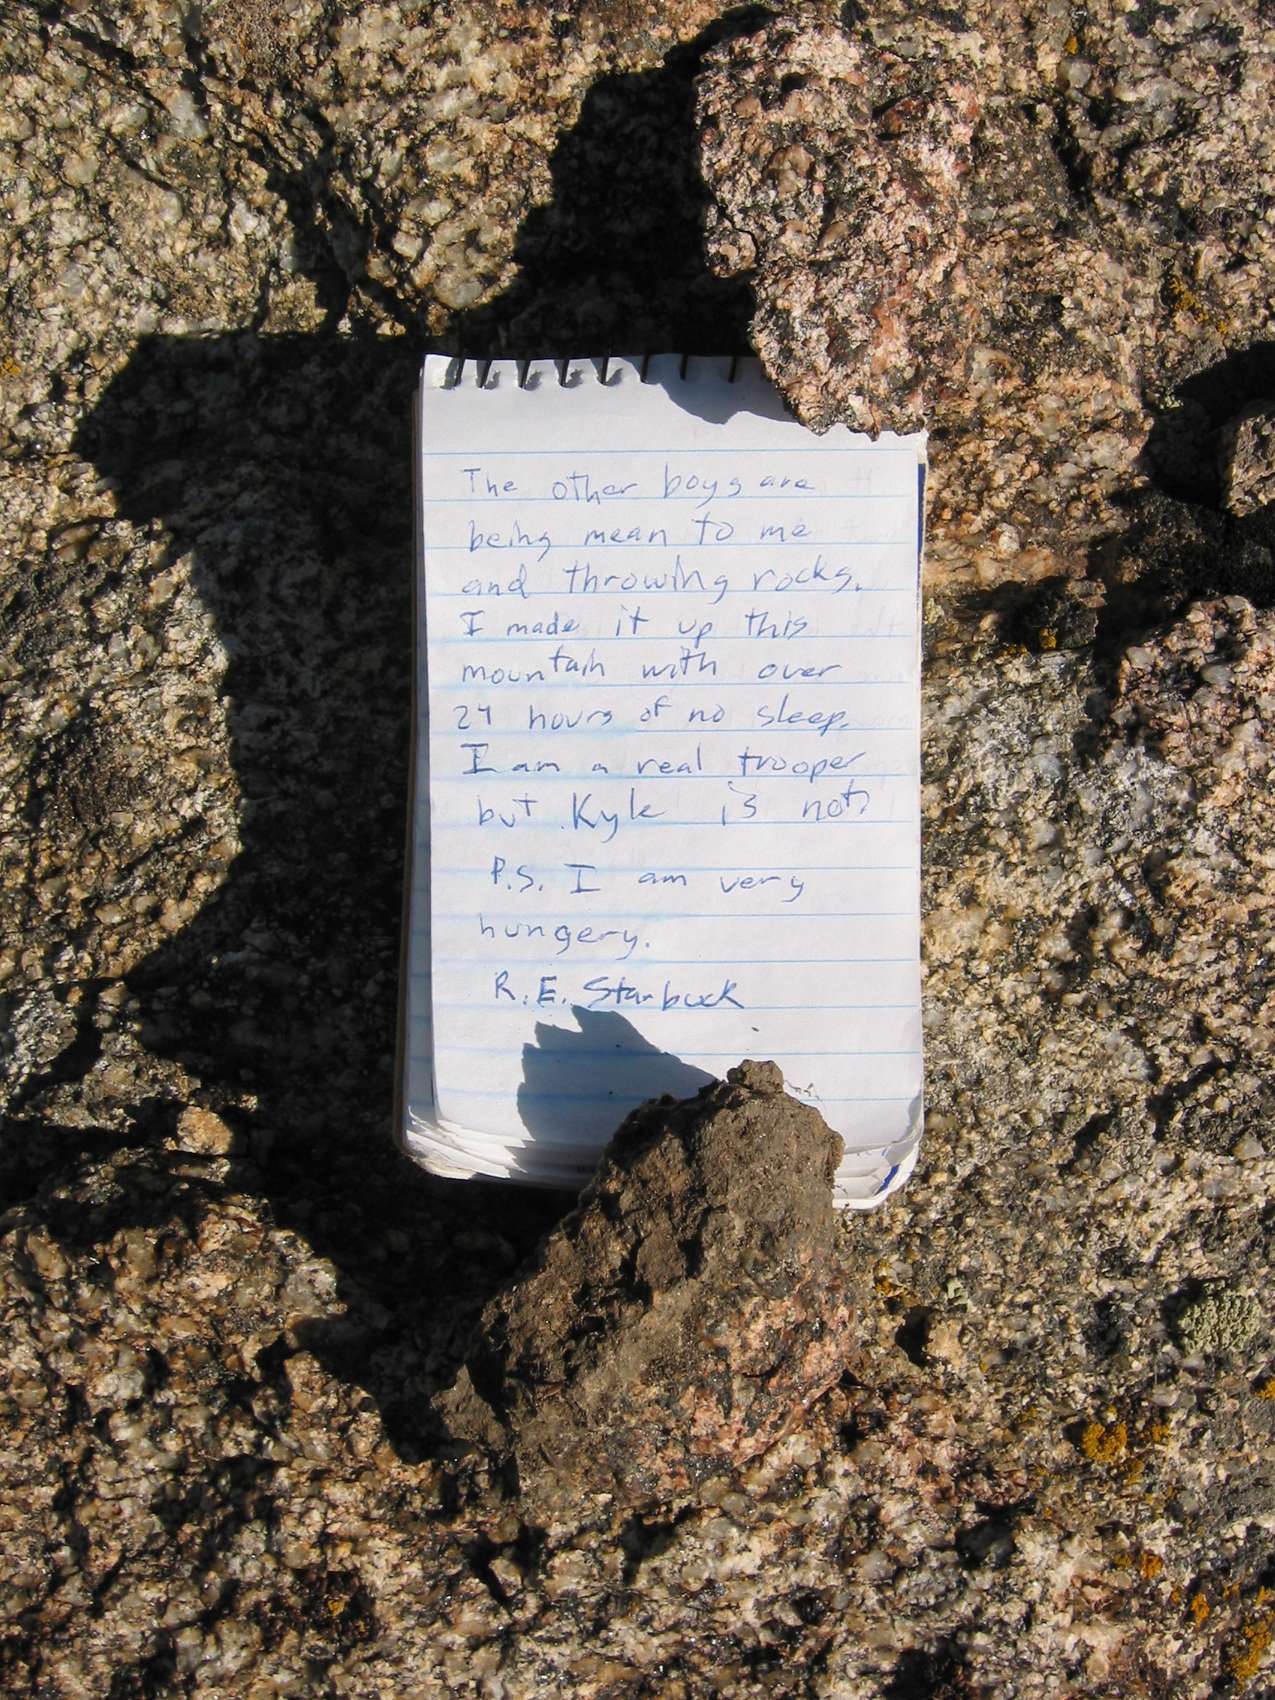 The other boys are
being mean to me
and throwing rocks.
I made it up this
mountain with over
24 hours of no sleep.
I am a real trooper
but Kyle is not.
P.S. I am very
hungery.
R.E. Starbuck